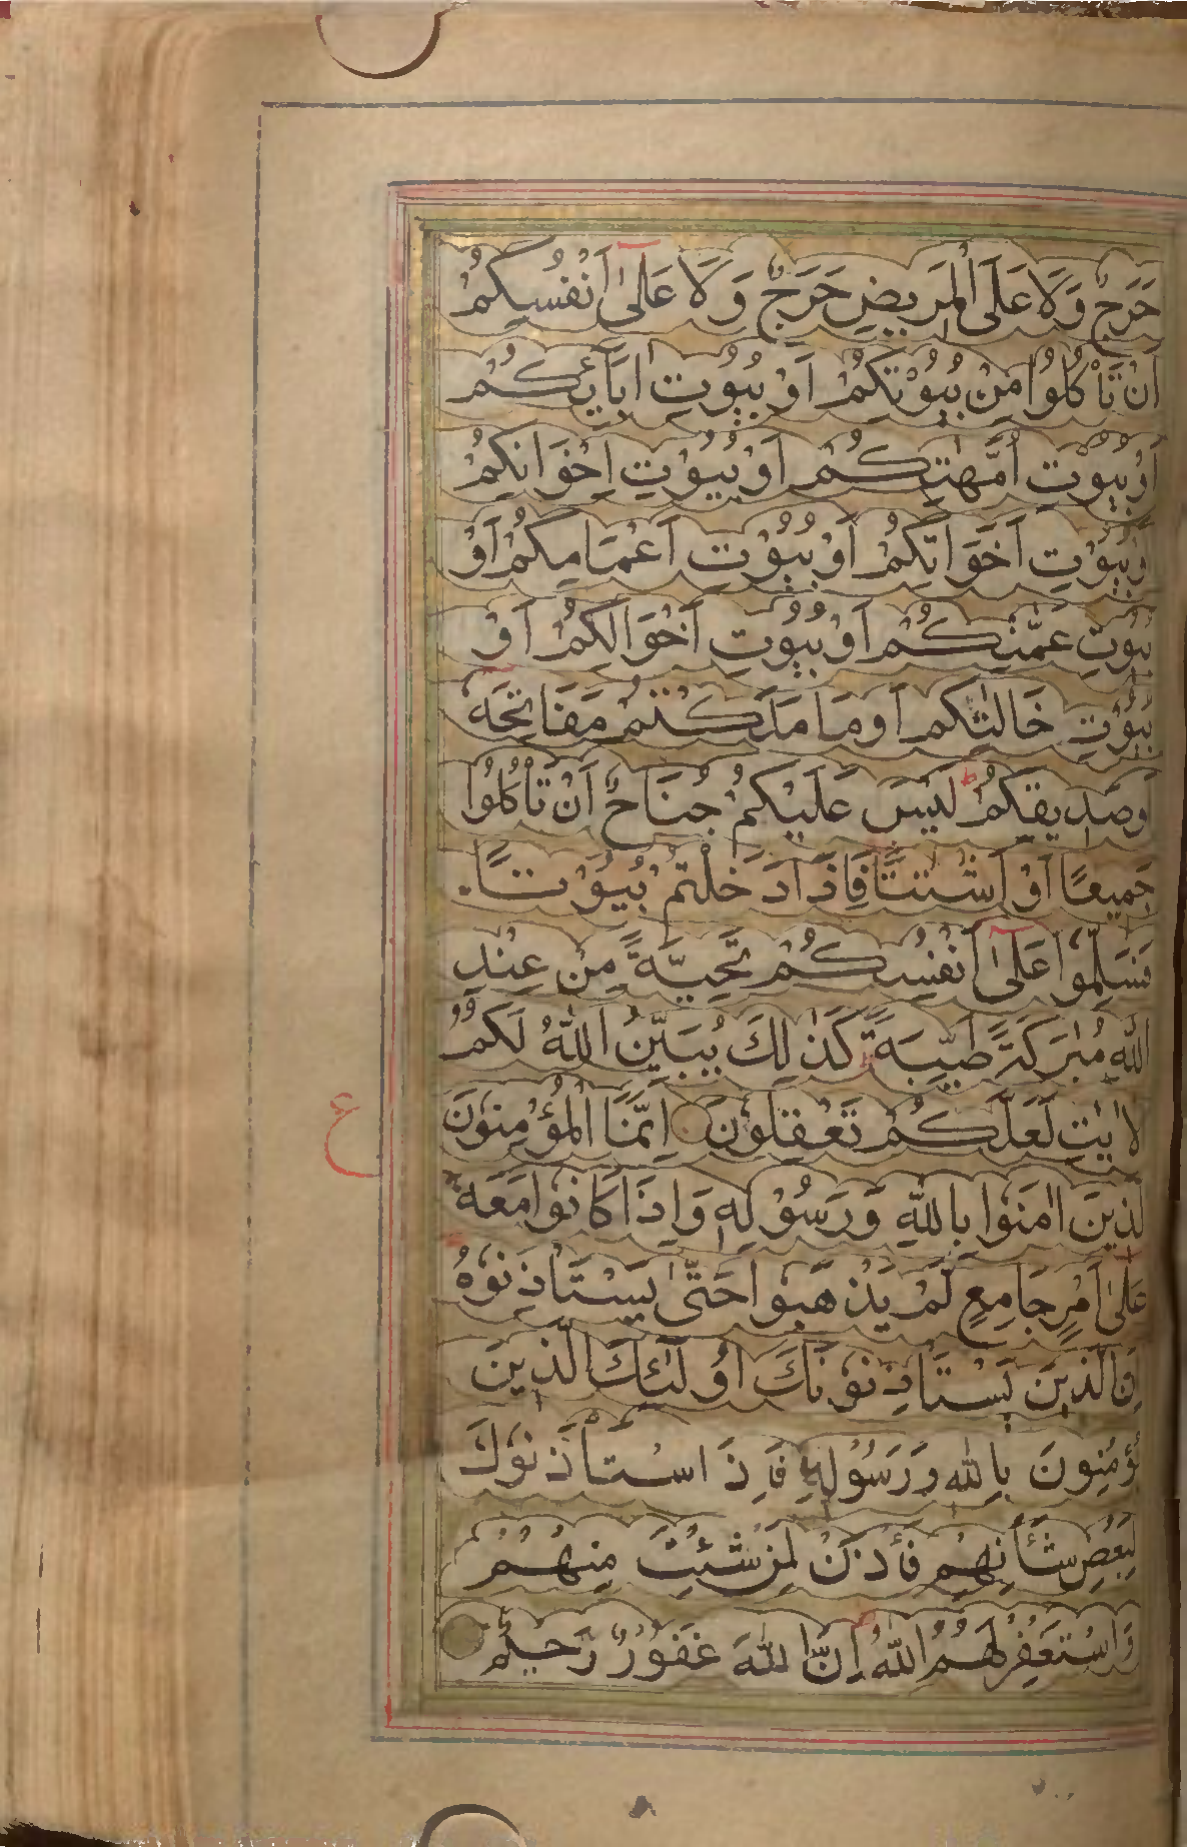 حَرَجٌ وَلَا عَلَى الْمَرِيضِ حَرَجٌ وَلَا عَلٰى اَنْفُسِكُمْ
اَنْ تَاْكُلُوْا مِنْ بُيُوْتِكُمْ اَوْ بُيُوتِ اٰبَآئِكُمْ
اَوْ بُيُوْتِ اُمَّهٰتِكُمْ اَوْ بُيُوْتِ اِخْوَانِكُمْ
اَوْ بُيُوْتِ اَخَوَاتِكُمْ اَوْ بُيُوْتِ اَعْمَامِكُمْ اَوْ
بُيُوْتِ عَمّٰتِكُمْ اَوْ بُيُوْتِ اَخْوَالِكُمْ اَوْ
بُيُوْتِ خَالٰتِكُم اَوما مَلَكْتُمْ مَفَاتِحَهٗ
اَوصَدِيقِكُمْ ط لَيْسَ عَلَيْكُمْ جُنَاحٌ اَنْ تَاْكُلُوْا
جَمِيعًا اَوْ اَشْتَتًا فَاِذَا دَخَلْتُمْ بُيُوْتًا
فَسَلِّمُوْا عَلٰٓى اَنْفُسِكُمْ تَحِيَّةً مِنْ عِنْدِ
اللّٰهِ مُبٰرَكَةً طَيِّبَةً كَذٰلِكَ يُبَيِّنُ اللّٰهُ لَكُمُ
الْاٰيٰتِ لَعَلَّكُمْ تَعْقِلُوْنَ اِنَّمَا الْمُؤْمِنُوْنَ
ع
الَّذِينَ اٰمَنُوْا بِاللّٰهِ وَرَسُوْلِهٖ وَاِذَا كَانُوْا مَعَهٗ
عَلٰى اَمْرٍ جَامِعٍ لَمْ يَذْهَبُوْا حَتّٰى يَسْتَاْذِنُوْهُ
اِنَّ الَّذِينَ يَسْتَاْذِنُوْنَكَ اُولٰٓئِكَ الَّذِينَ
يُؤْمِنُونَ بِاللّٰهِ وَرَسُوْلِهٖ فَاِذَا اسْتَاْذَنُوْكَ
لِبَعْضِ شَاْنِهِمْ فَأْذَنْ لِمَنْ شِئْتَ مِنْهُمْ
وَاسْتَغْفِرْ لَهُمُ اللّٰهَ اِنَّ اللّٰهَ غَفُوْرٌ رَحِيْمٌ